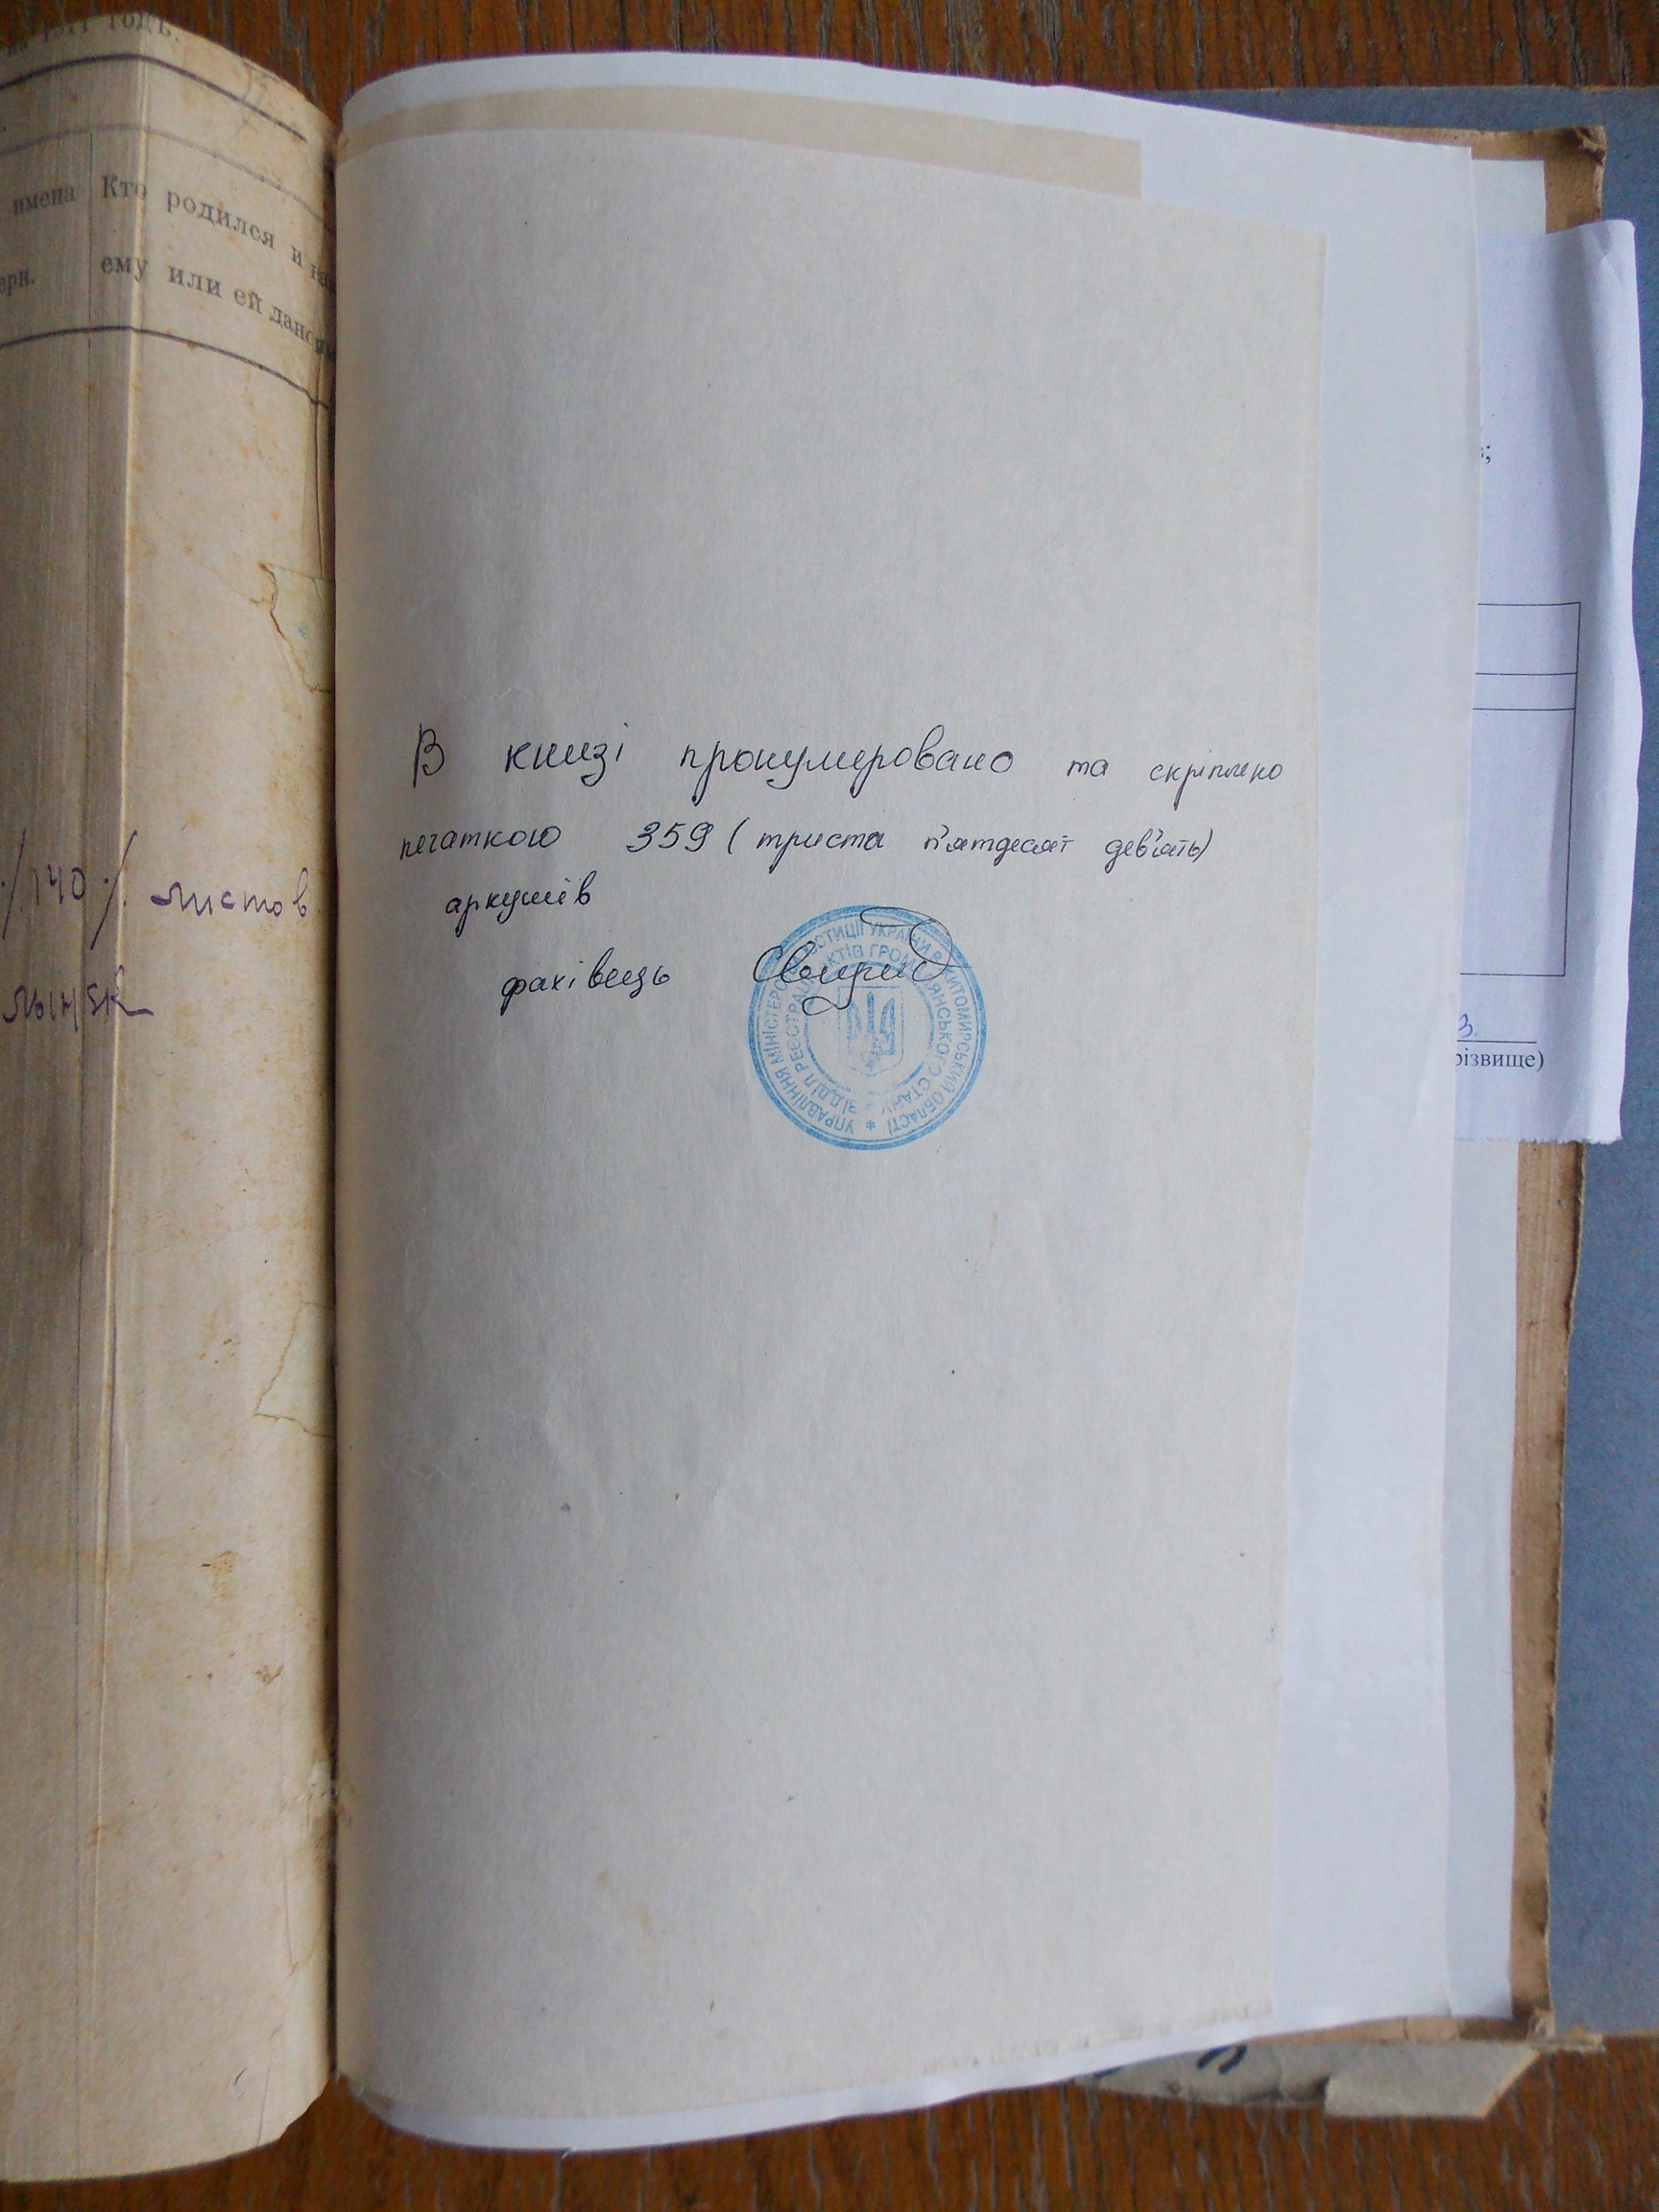 годъ.
имена
Кто родился и
ери.
ему или ей дано
140 листов
В книзі пронумеровано та скріплено
печаткою 359 (триста п'ятдесят дев'ять)
аркушів
фахівець
УПРАВЛІННЯ МІНІСТЕРСТВА ЮСТИЦІЇ УКРАЇНИ В ЖИТОМИРСЬКІЙ ОБЛАСТІ *
ВІДДІЛ РЕЄСТРАЦІЇ АКТІВ ГРОМАДЯНСЬКОГО СТАНУ
;
3.
різвище)